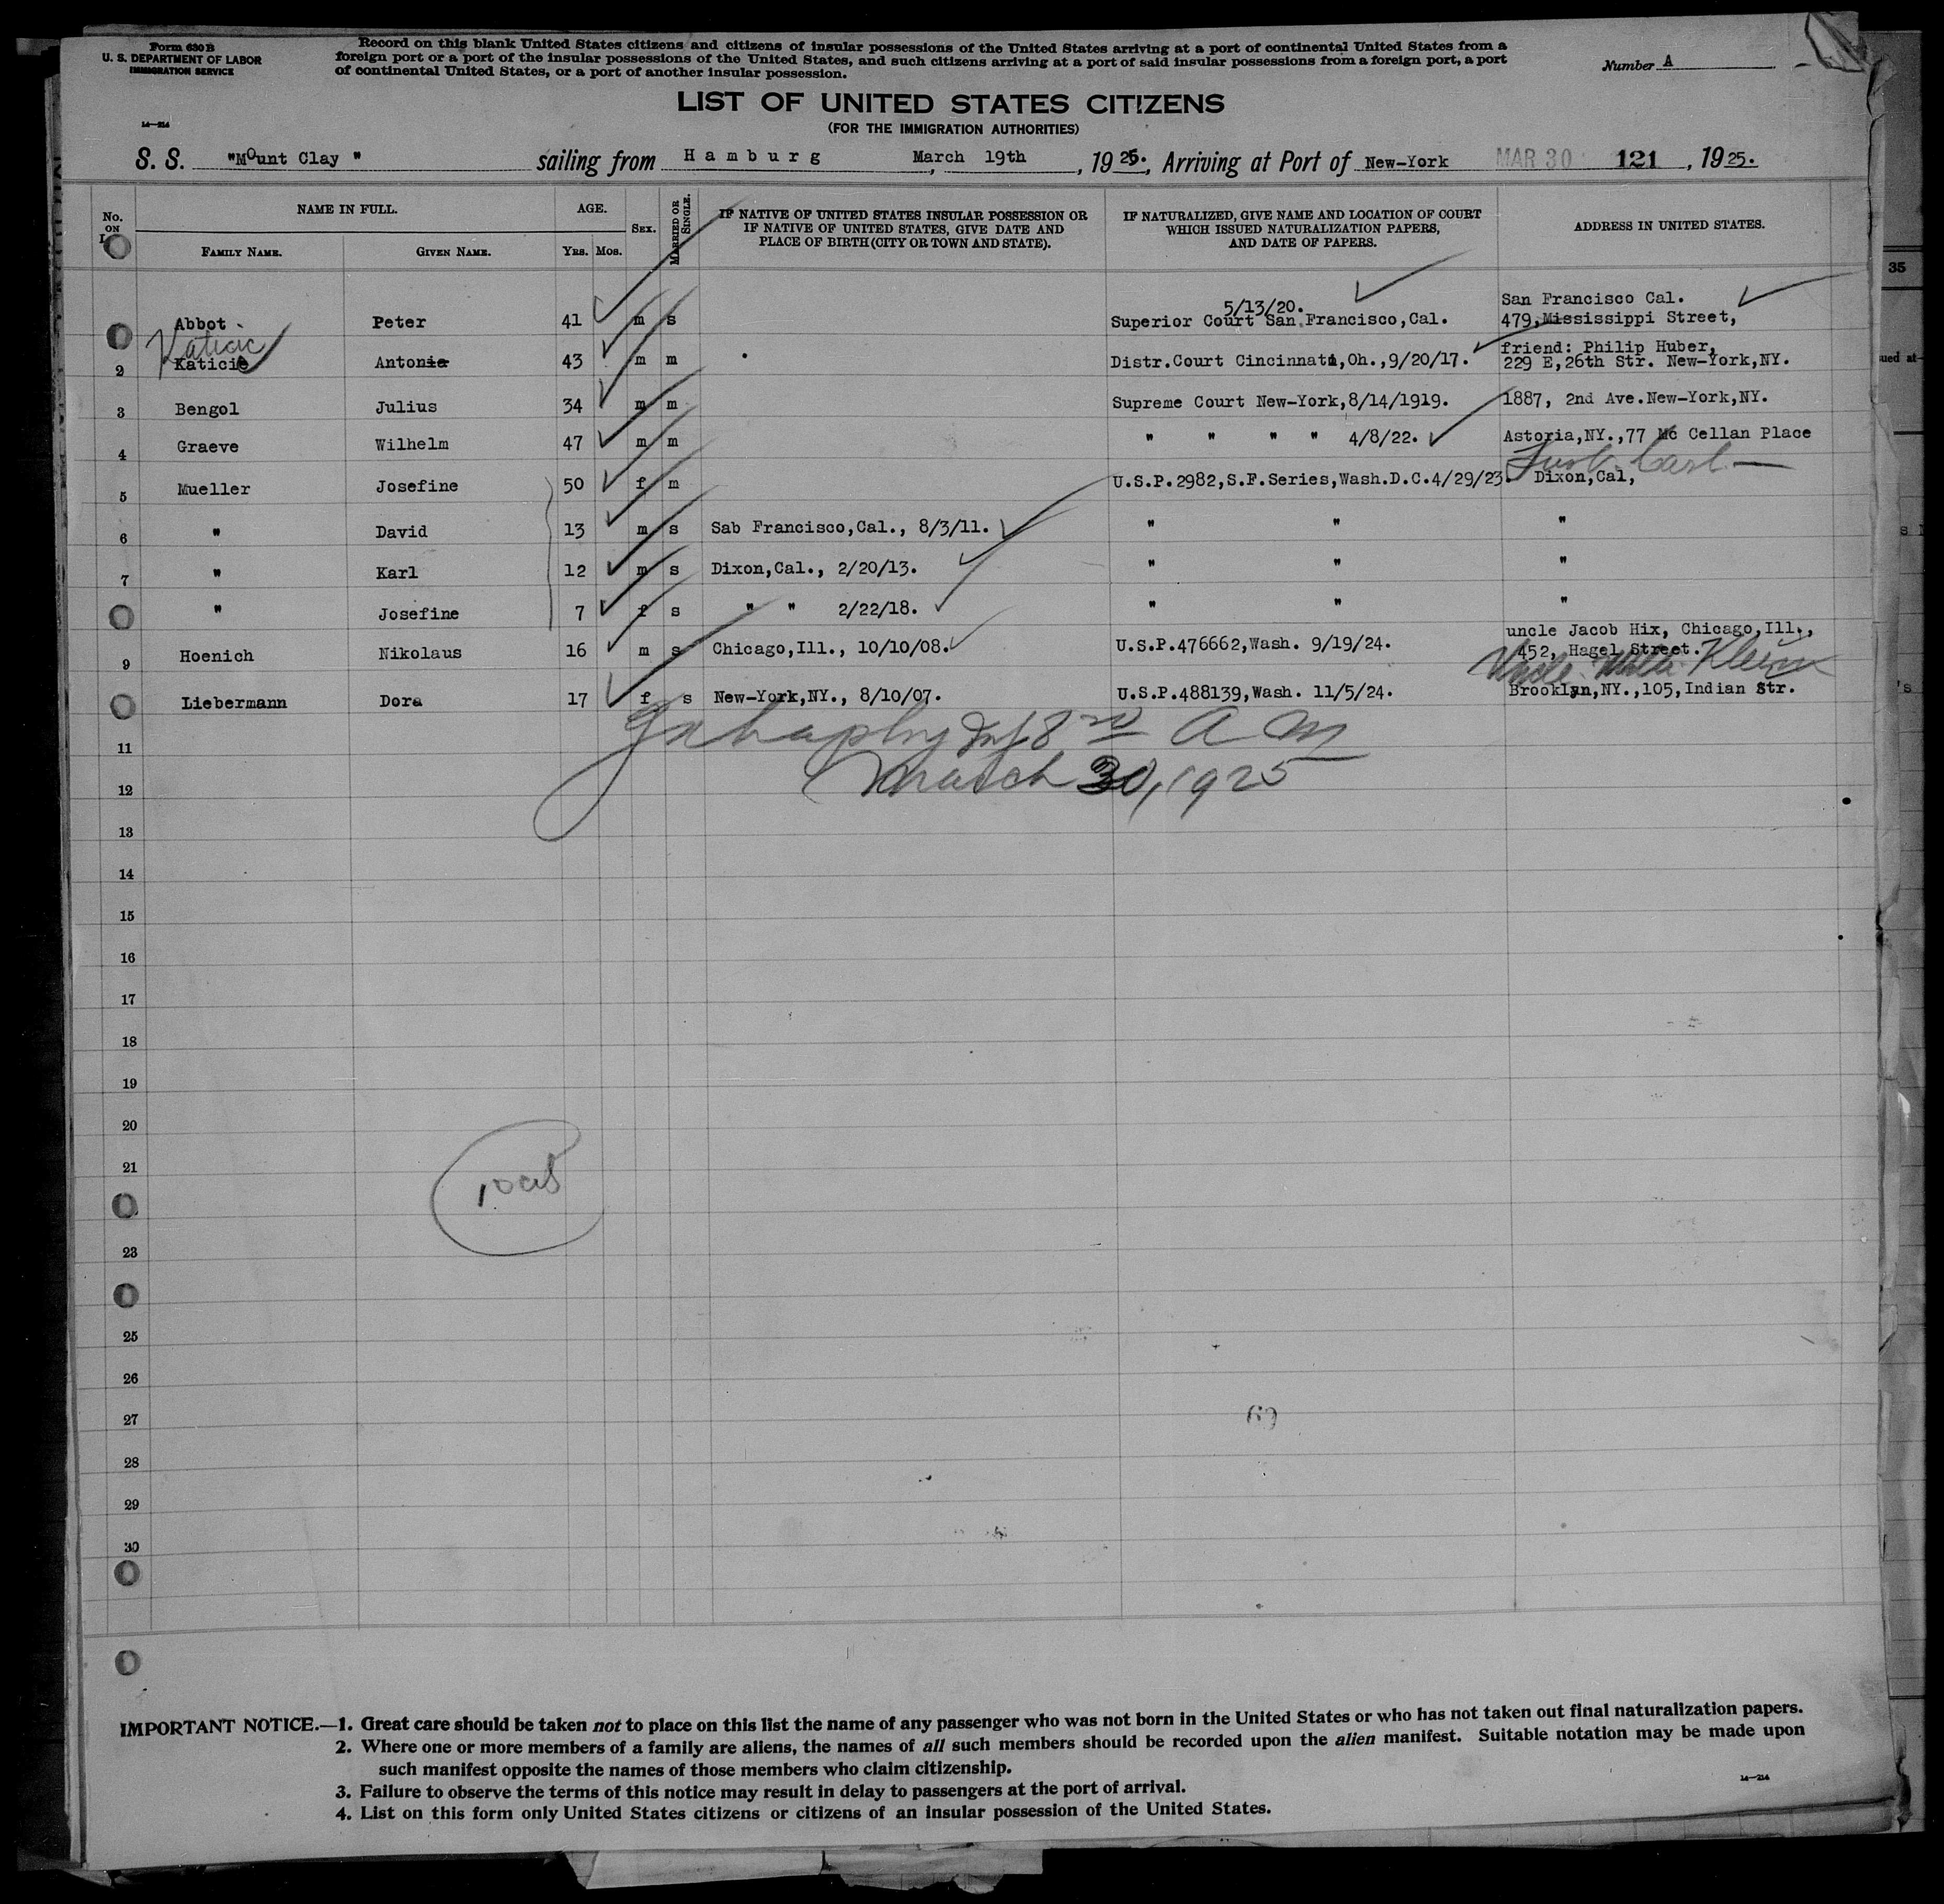 Form 630 B
U. S. DEPARTMENT OF LABOR
IMMIGRATION SERVICE
Record on this blank United States citizens and citizens of insular possessions of the United States arriving at a port of continental United States from a
foreign port or a port of the insular possessions of the United States, and such citizens arriving at a port of said insular possessions from a foreign port, a port
of continental United States, or a port of another insular possession.
Number A
LIST OF UNITED STATES CITIZENS
(FOR THE IMMIGRATION AUTHORITIES)
14—214
S. S. "Mount Clay" sailing from Hamburg, March 19th, 1925., Arriving at Port of New-York MAR 30 121, 1925.
No. ON NAME IN FULL. AGE. SEX. MARRIED OR SINGLE. IF NATIVE OF UNITED STATES INSULAR POSSESSION OR IF NATIVE OF UNITED STATES, GIVE DATE AND PLACE OF BIRTH (CITY OR TOWN AND STATE). IF NATURALIZED, GIVE NAME AND LOCATION OF COURT WHICH ISSUED NATURALIZATION PAPERS, AND DATE OF PAPERS. ADDRESS IN UNITED STATES.
FAMILY NAME. GIVEN NAME. YRS. MOS.
5/13/20. San Francisco Cal.
Abbot Peter 41 m s Superior Court San Francisco,Cal. 479,Mississippi Street,
Katicic
friend: Philip Huber,
2 Katicie Antonie 43 m m Distr.Court Cincinnati,Oh.,9/20/17. 229 E,26th Str. New-York,NY.
3 Bengol Julius 34 m m Supreme Court New-York,8/14/1919. 1887, 2nd Ave.New-York,NY.
4 Graeve Wilhelm 47 m m " " " " 4/8/22. Astoria,NY.,77 Mc Cellan Place
5 Mueller Josefine 50 f m U.S.P.2982,S.F.Series,Wash.D.C.4/29/23. Dixon,Cal,
6 " David 13 m s Sab Francisco,Cal., 8/3/11. " " "
7 " Karl 12 m s Dixon,Cal., 2/20/13. " " "
" Josefine 7 f s " " 2/22/18. " " "
uncle Jacob Hix, Chicago,Ill.,
9 Hoenich Nikolaus 16 m s Chicago,Ill., 10/10/08. U.S.P.476662,Wash. 9/19/24. 452, Hagel Street.
Uncle Klein
Liebermann Dora 17 f s New-York,NY., 8/10/07. U.S.P.488139,Wash. 11/5/24. Brooklyn,NY.,105,Indian Str.
11 A M
12 March 30, 1925
13
14
15
16
17
18
19
20
21
23
25
26
27
28
29
30
IMPORTANT NOTICE.—1. Great care should be taken not to place on this list the name of any passenger who was not born in the United States or who has not taken out final naturalization papers.
2. Where one or more members of a family are aliens, the names of all such members should be recorded upon the alien manifest. Suitable notation may be made upon
such manifest opposite the names of those members who claim citizenship.
3. Failure to observe the terms of this notice may result in delay to passengers at the port of arrival.
4. List on this form only United States citizens or citizens of an insular possession of the United States.
14—214
35